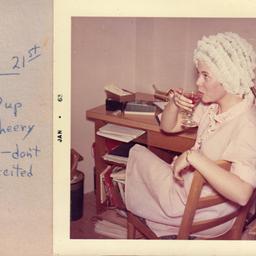 21st
up
cheery
- don't
excited
JAN • 63